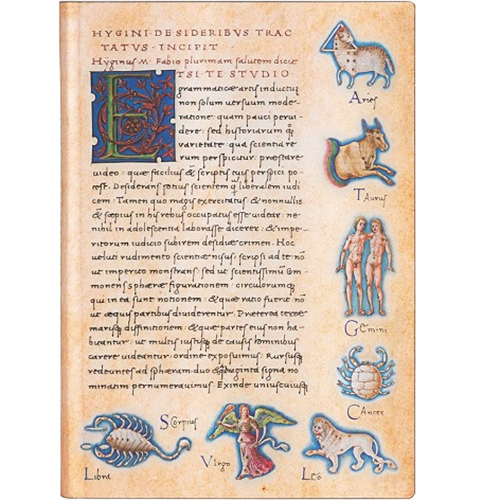 HYGINI·DE SIDERIBVS TRAC
TATVS·INCIPIT·
Hyginus M. Fabio plurimam salutem dicit
ETSI·TE STVDIO
grammaticae artis inductus
non solum versuum mode-
ratione quam pauci pervi-
dere: sed historiarum quoq;
varietate qua scientia re
rum perspicitur praestare
video: quae facilius & scriptis tuis perspici po-
test. Desiderans potius scientem q̃ liberalem iudi
cem: Tamen quo magis exercitatus & nonnullis
& saepius in his rebus occupatus esse videar: ne-
nihil in adolescentia laborasse dicerer: & impe-
ritorum iudicio subirem desidiae crimen. Hoc
velut rudimento scientiae nisus: scripsi ad te: nō
ut imperito monstrans: sed ut scientissimū Com-
monens sphaerae figurationem: circulorumq;
qui in ea sunt notionem: & quae ratio fuerit: nō
ut aequis partibus dividerentur. Praeterea terrae
marisq; diffinitionem: & quae partes eius non ha-
bitantur: ut multis iustisq; de causis hominibus
carere videantur: ordine exposuimus. Rursusq;
redeuntes ad sphaeram duo & quadraginta signa no
minatim pernumeravimus. Exinde uniuscuiusq;
Aries
Taurus
Gemini
Cancer
Scorpius
Libra
Virgo
Leo